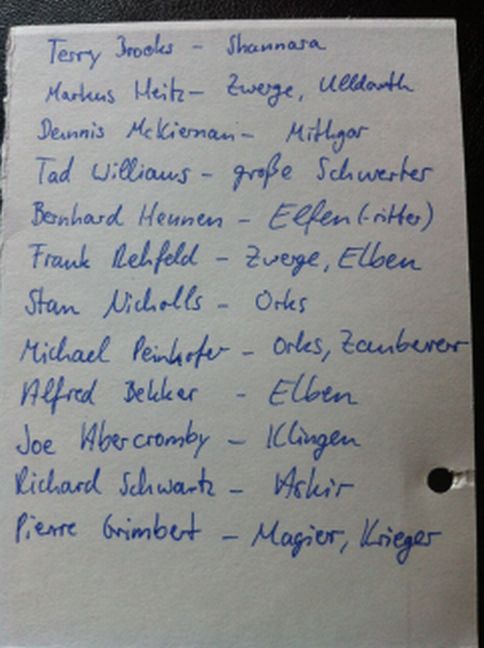 Terry Brooks - Shannara
Markus Heitz - Zwerge, Ulldarth
Dennis McKiernan - Mithgar
Tad Williams - große Schwerter
Bernhard Hennen - Elfen (-ritter)
Frank Rehfeld - Zwerge, Elben
Stan Nicholls - Orks
Michael Peinkofer - Orks, Zauberer
Alfred Bekker - Elben
Joe Abercromby - Klingen
Richard Schwartz - Askir
Pierre Grimbert - Magier, Krieger